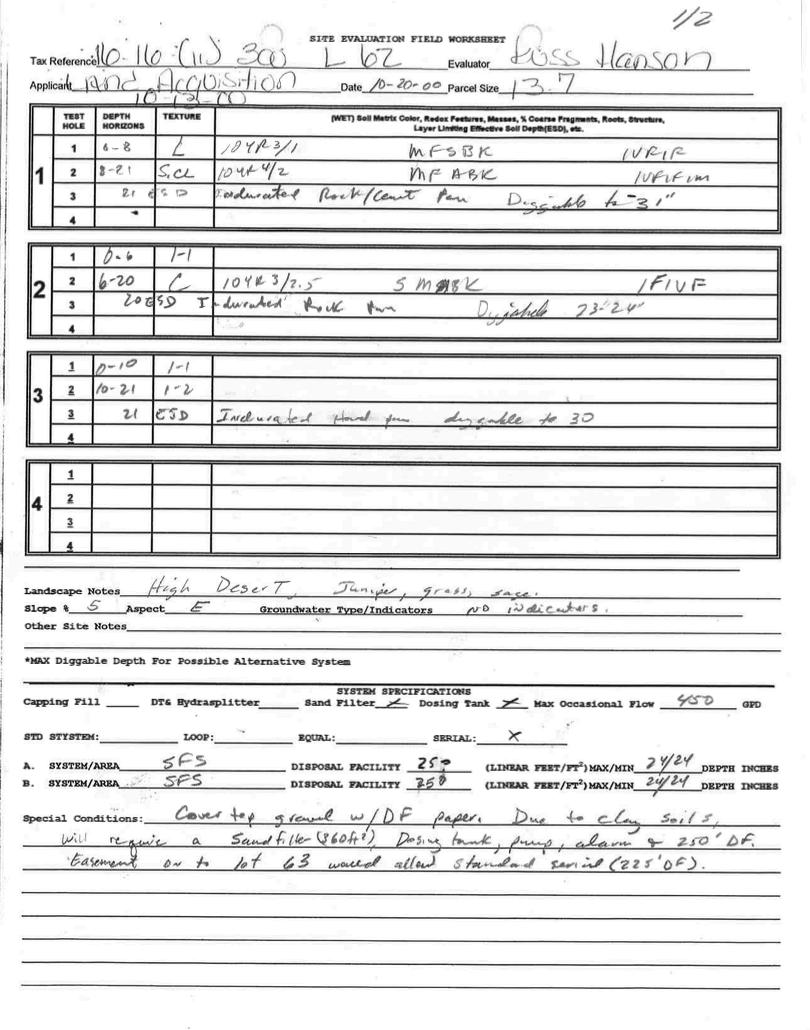 1/2
SITE EVALUATION FIELD WORKSHEET
Tax Reference 16-16-(11) 300 L 62 Evaluator Russ Hanson
Applicant Land Acquisition Date 10-20-00 Parcel Size 13.7
10-12-00
TEST HOLE DEPTH HORIZONS TEXTURE (WET) Soil Matrix Color, Redox Features, Masses, % Coarse Fragments, Roots, Structure, Layer Limiting Effective Soil Depth(ESD), etc.
1
1 0-8 L 10YR3/1 MFSBK 1VF1F
2 8-21 SiCL 10YR4/2 MFABK 1VF1F1m
3 21 ESD Indurated Rock/Cemt Pan Diggable to 31"
4
2
1 0-6 1-1
2 6-20 C 10YR3/2.5 SMSBK 1F1VF
3 20 ESD Indurated Rock Pan Diggable 23-24"
4
3
1 0-10 1-1
2 10-21 1-2
3 21 ESD Indurated Hard pan diggable to 30
4
4
1
2
3
4
Landscape Notes High Desert, Juniper, grass, sage.
Slope % 5 Aspect E Groundwater Type/Indicators NO indicators.
Other Site Notes
*MAX Diggable Depth For Possible Alternative System
SYSTEM SPECIFICATIONS
Capping Fill DT& Hydrasplitter Sand Filter X Dosing Tank X Max Occasional Flow 450 GPD
STD STYSTEM: LOOP: EQUAL: SERIAL: X
A. SYSTEM/AREA SFS DISPOSAL FACILITY 250 (LINEAR FEET/FT²) MAX/MIN 24/24 DEPTH INCHES
B. SYSTEM/AREA SFS DISPOSAL FACILITY 250 (LINEAR FEET/FT²) MAX/MIN 24/24 DEPTH INCHES
Special Conditions: Cover top gravel w/DF paper. Due to clay soils,
will require a Sandfilter (360ft²), Dosing tank, pump, alarm & 250' DF.
Easement on to lot 63 would allow standard serial (225'DF).